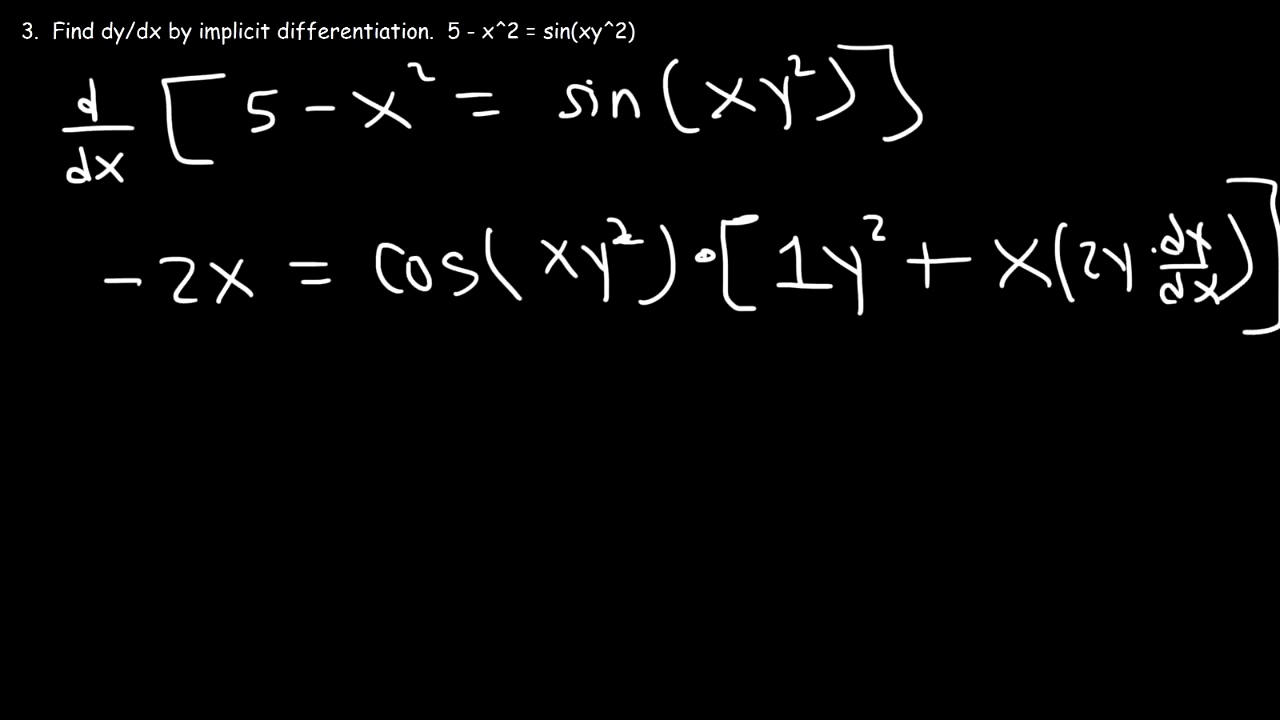 3. Find dy/dx by implicit differentiation. 5 - x^2 = sin(xy^2)
d/dx [5 - x² = sin(xy²)]
-2x = cos(xy²) · [1y² + x(2y · dy/dx)]